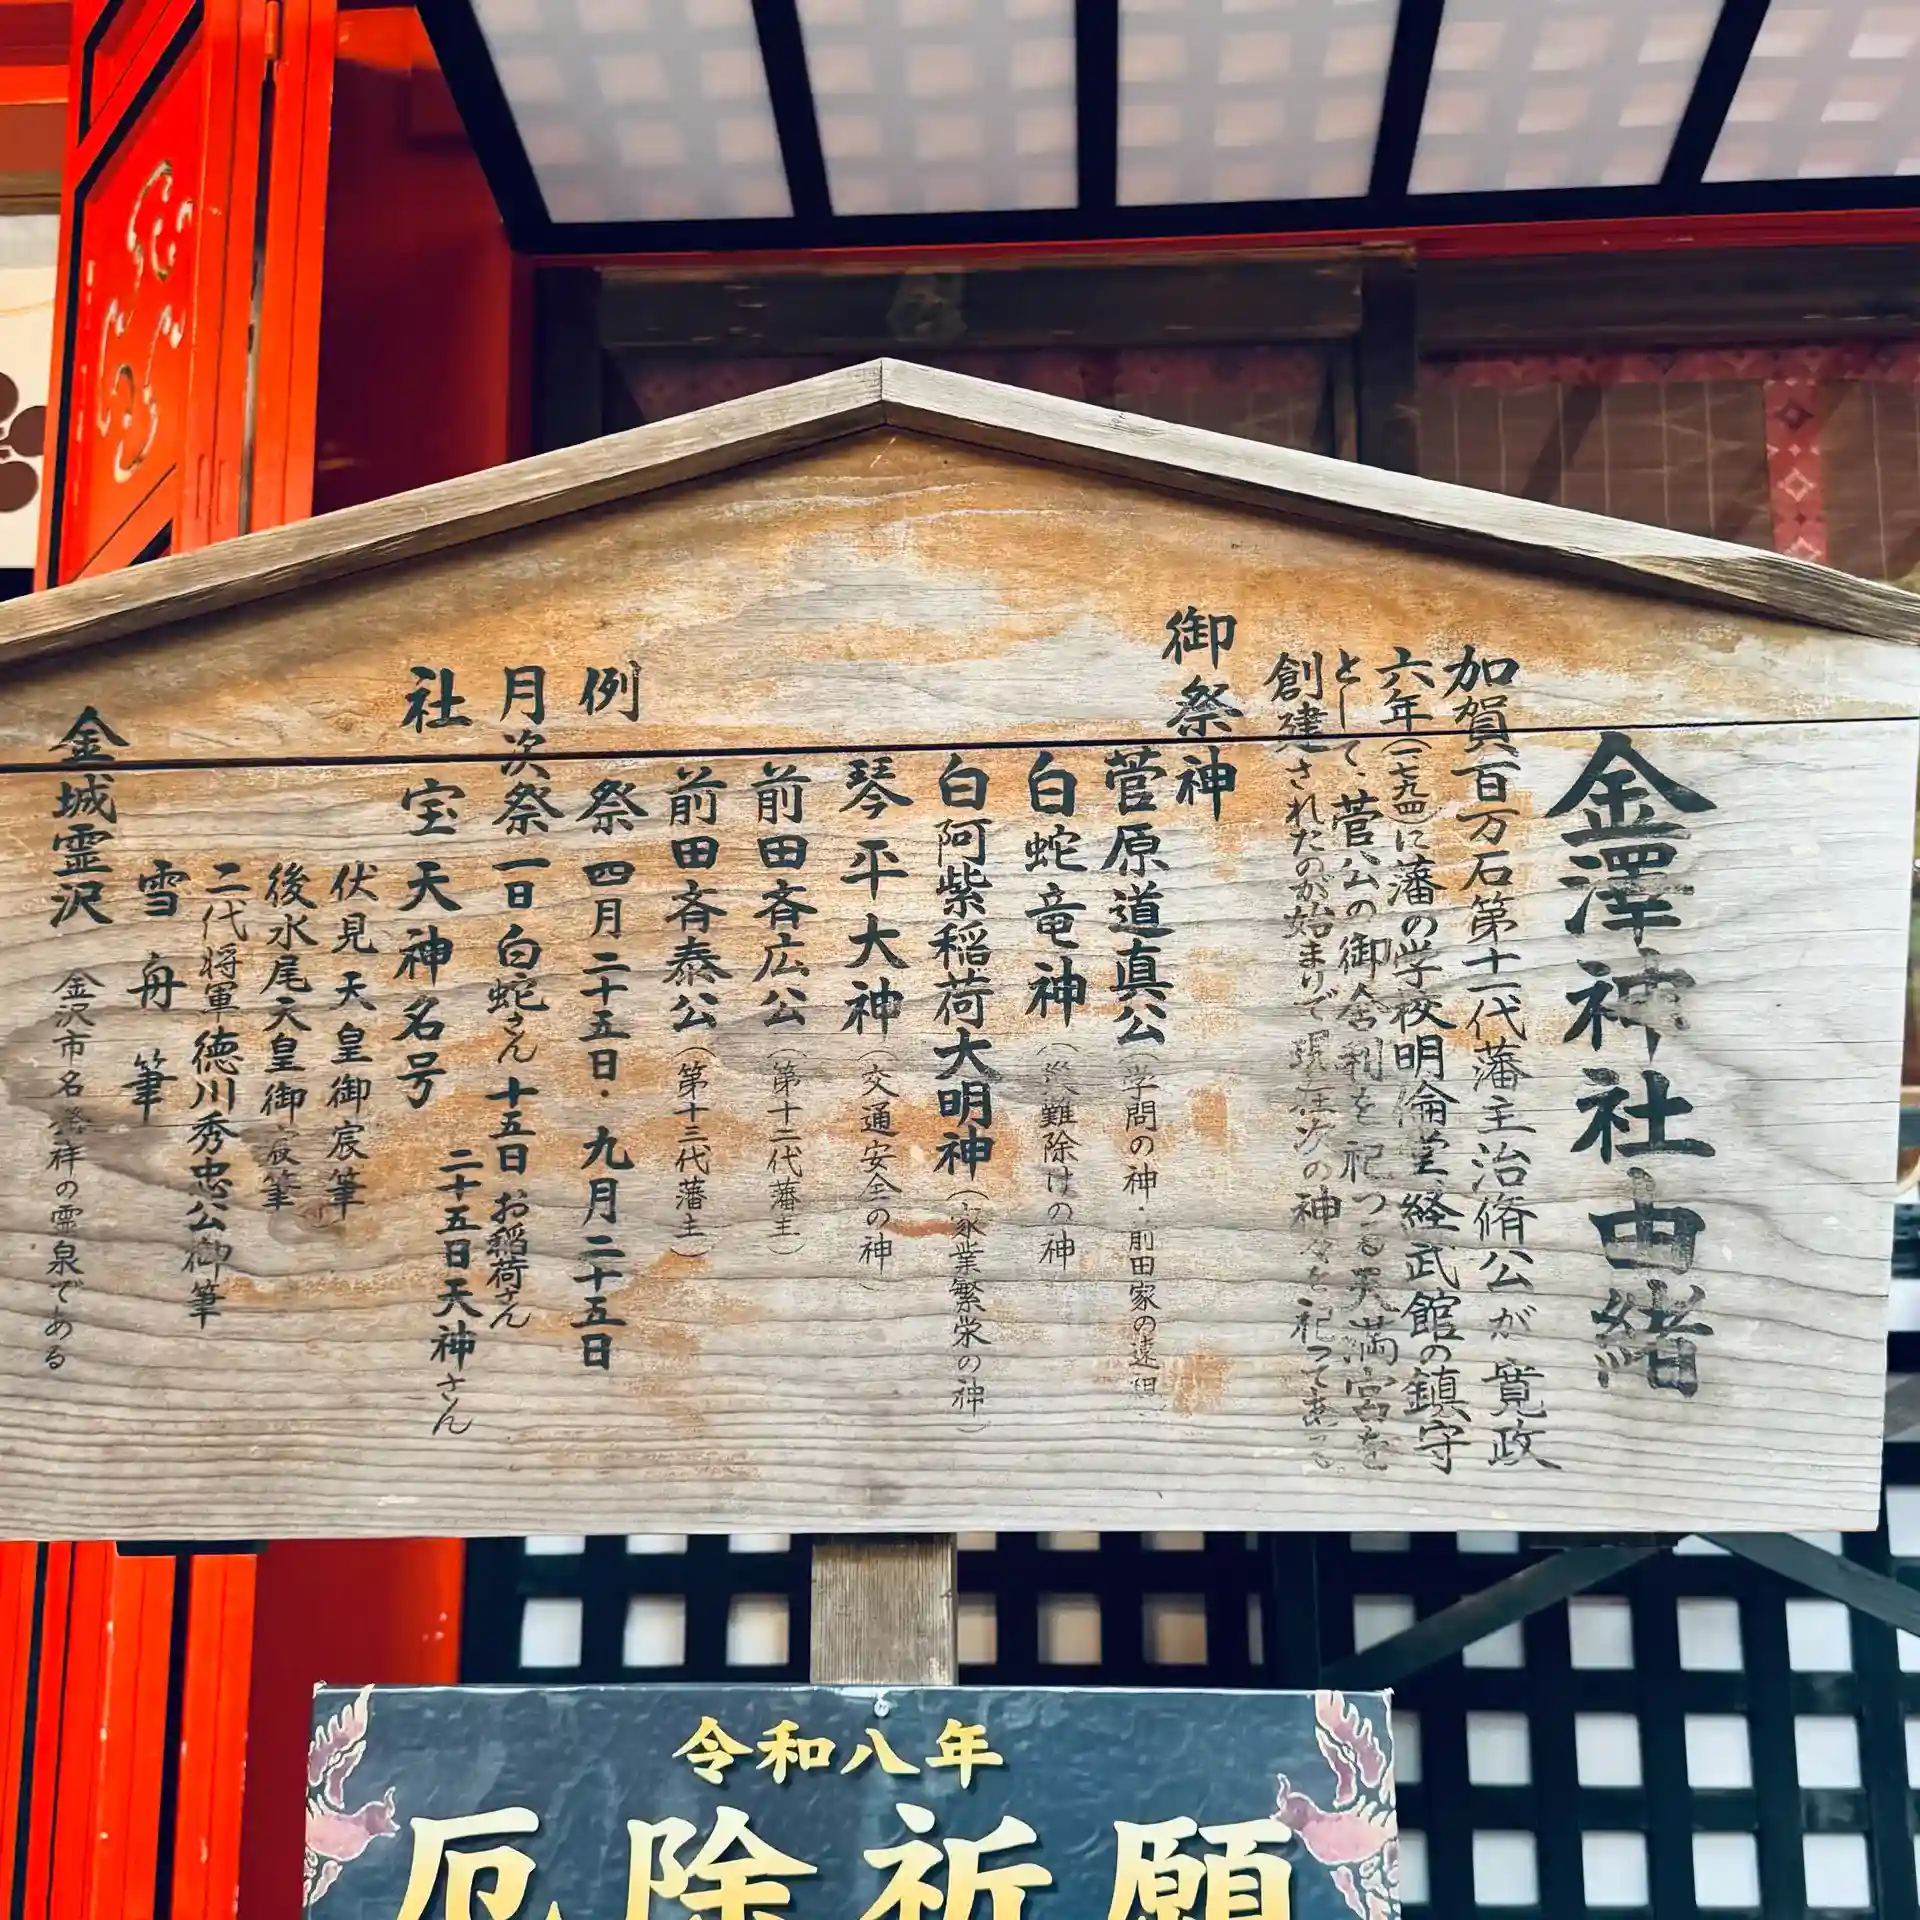 金澤神社由緒
加賀百万石第十一代藩主治脩公が寛政
六年(一七九四)に藩の学校明倫堂、経武館の鎮守
として、菅公の御舎利を祀つる天満宮を
創建されたのが始まりで現在次の神々を祀って
御祭神
菅原道真公(学問の神・前田家の遠祖)
白蛇竜神(災難除けの神)
白阿紫稲荷大明神(家業繁栄の神)
琴平大神(交通安全の神)
前田斉広公(第十二代藩主)
前田斉泰公(第十三代藩主)
例祭 四月二十五日・九月二十五日
月次祭 一日白蛇さん 十五日お稲荷さん
二十五日天神さん
社宝 天神名号
伏見天皇御宸筆
後水尾天皇御宸筆
二代将軍徳川秀忠公御筆
雪舟筆
金城霊沢 金沢市名発祥の霊泉である
令和八年
厄除祈願